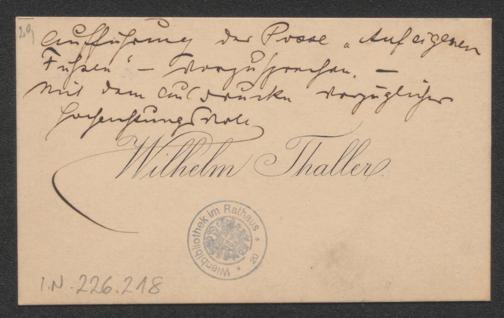 Aufführung der Posse „Auf eigenen
Füßen“ – vorzusprechen. –
Mit dem Ausdrucke vorzüglicher
Hochachtungsvoll
Wilhelm Thaller.
Wienbibliothek im Rathaus
I.N. 226.218